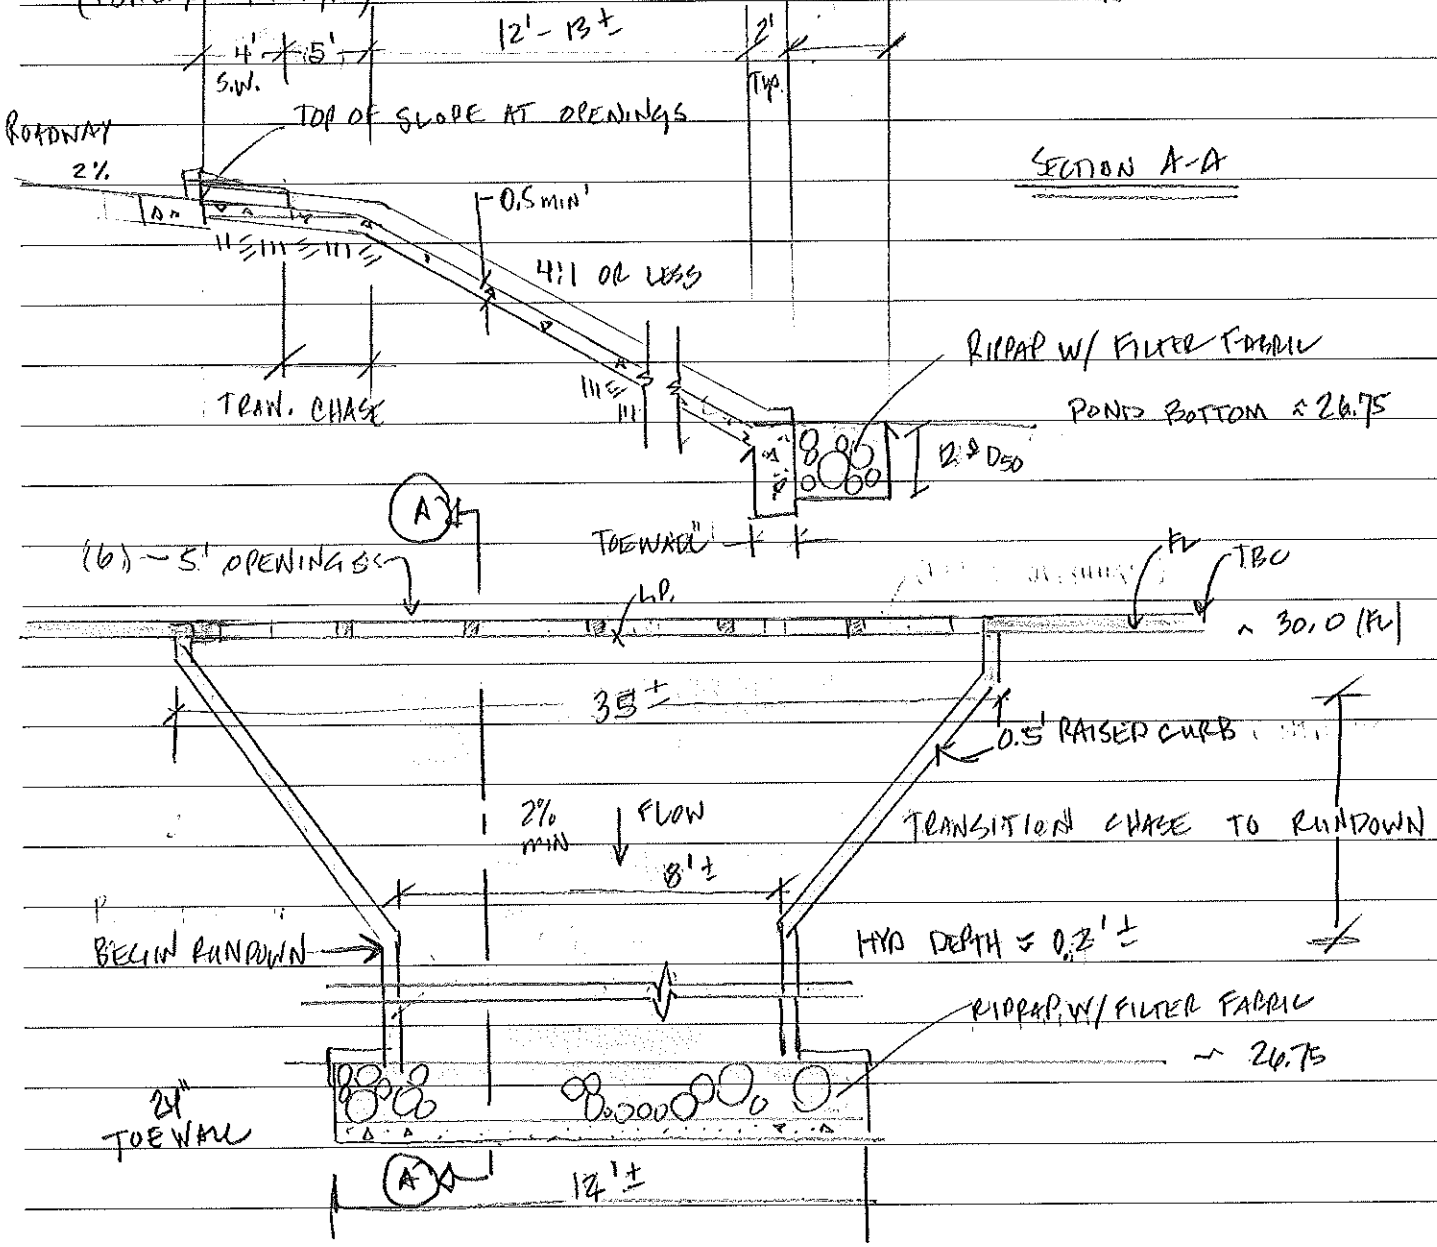 4' 5' 12'-13± 2'
S.W. Typ.
ROADWAY TOP OF SLOPE AT OPENINGS
2%
SECTION A-A
0.5 MIN'
4:1 OR LESS
RIPRAP W/ FILTER FABRIC
TRAN. CHASE
POND BOTTOM ≈ 26.75
D50
A
TOEWALL
(6) - 5' OPENINGS
FL
TBC
L.P.
~ 30.0 (FL)
35±
0.5' RAISED CURB
2%
MIN
FLOW
TRANSITION CHASE TO RUNDOWN
8'±
BEGIN RUNDOWN
HYD DEPTH ≈ 0.2'±
RIPRAP W/ FILTER FABRIC
~ 26.75
24"
TOE WALL
A
12'±